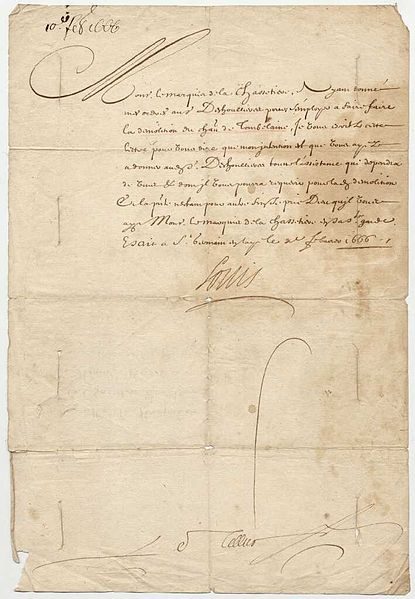 10e feb 1666
Mons. le marquis de la Chassetiere, Ayant donné
mes ordres au Sr Deshoullieres pour s'employer a faire faire
la demolition du chau de Tombelaine, Je vous écris cette
lettre pour vous dire que mon intention est que vous ayez
a donner audt Sr Deshoullieres toute l'assistance qui dependra
de vous et dont il vous pourra requerir pour lad demolition
Et la pnte n'estant pour autre Je prie Dieu qu'il vous
ayt Mons. le marquis de la Chassetiere en sa ste garde
Escrit a St Germain en Laye le feburier 1666
Louis
Le Tellier